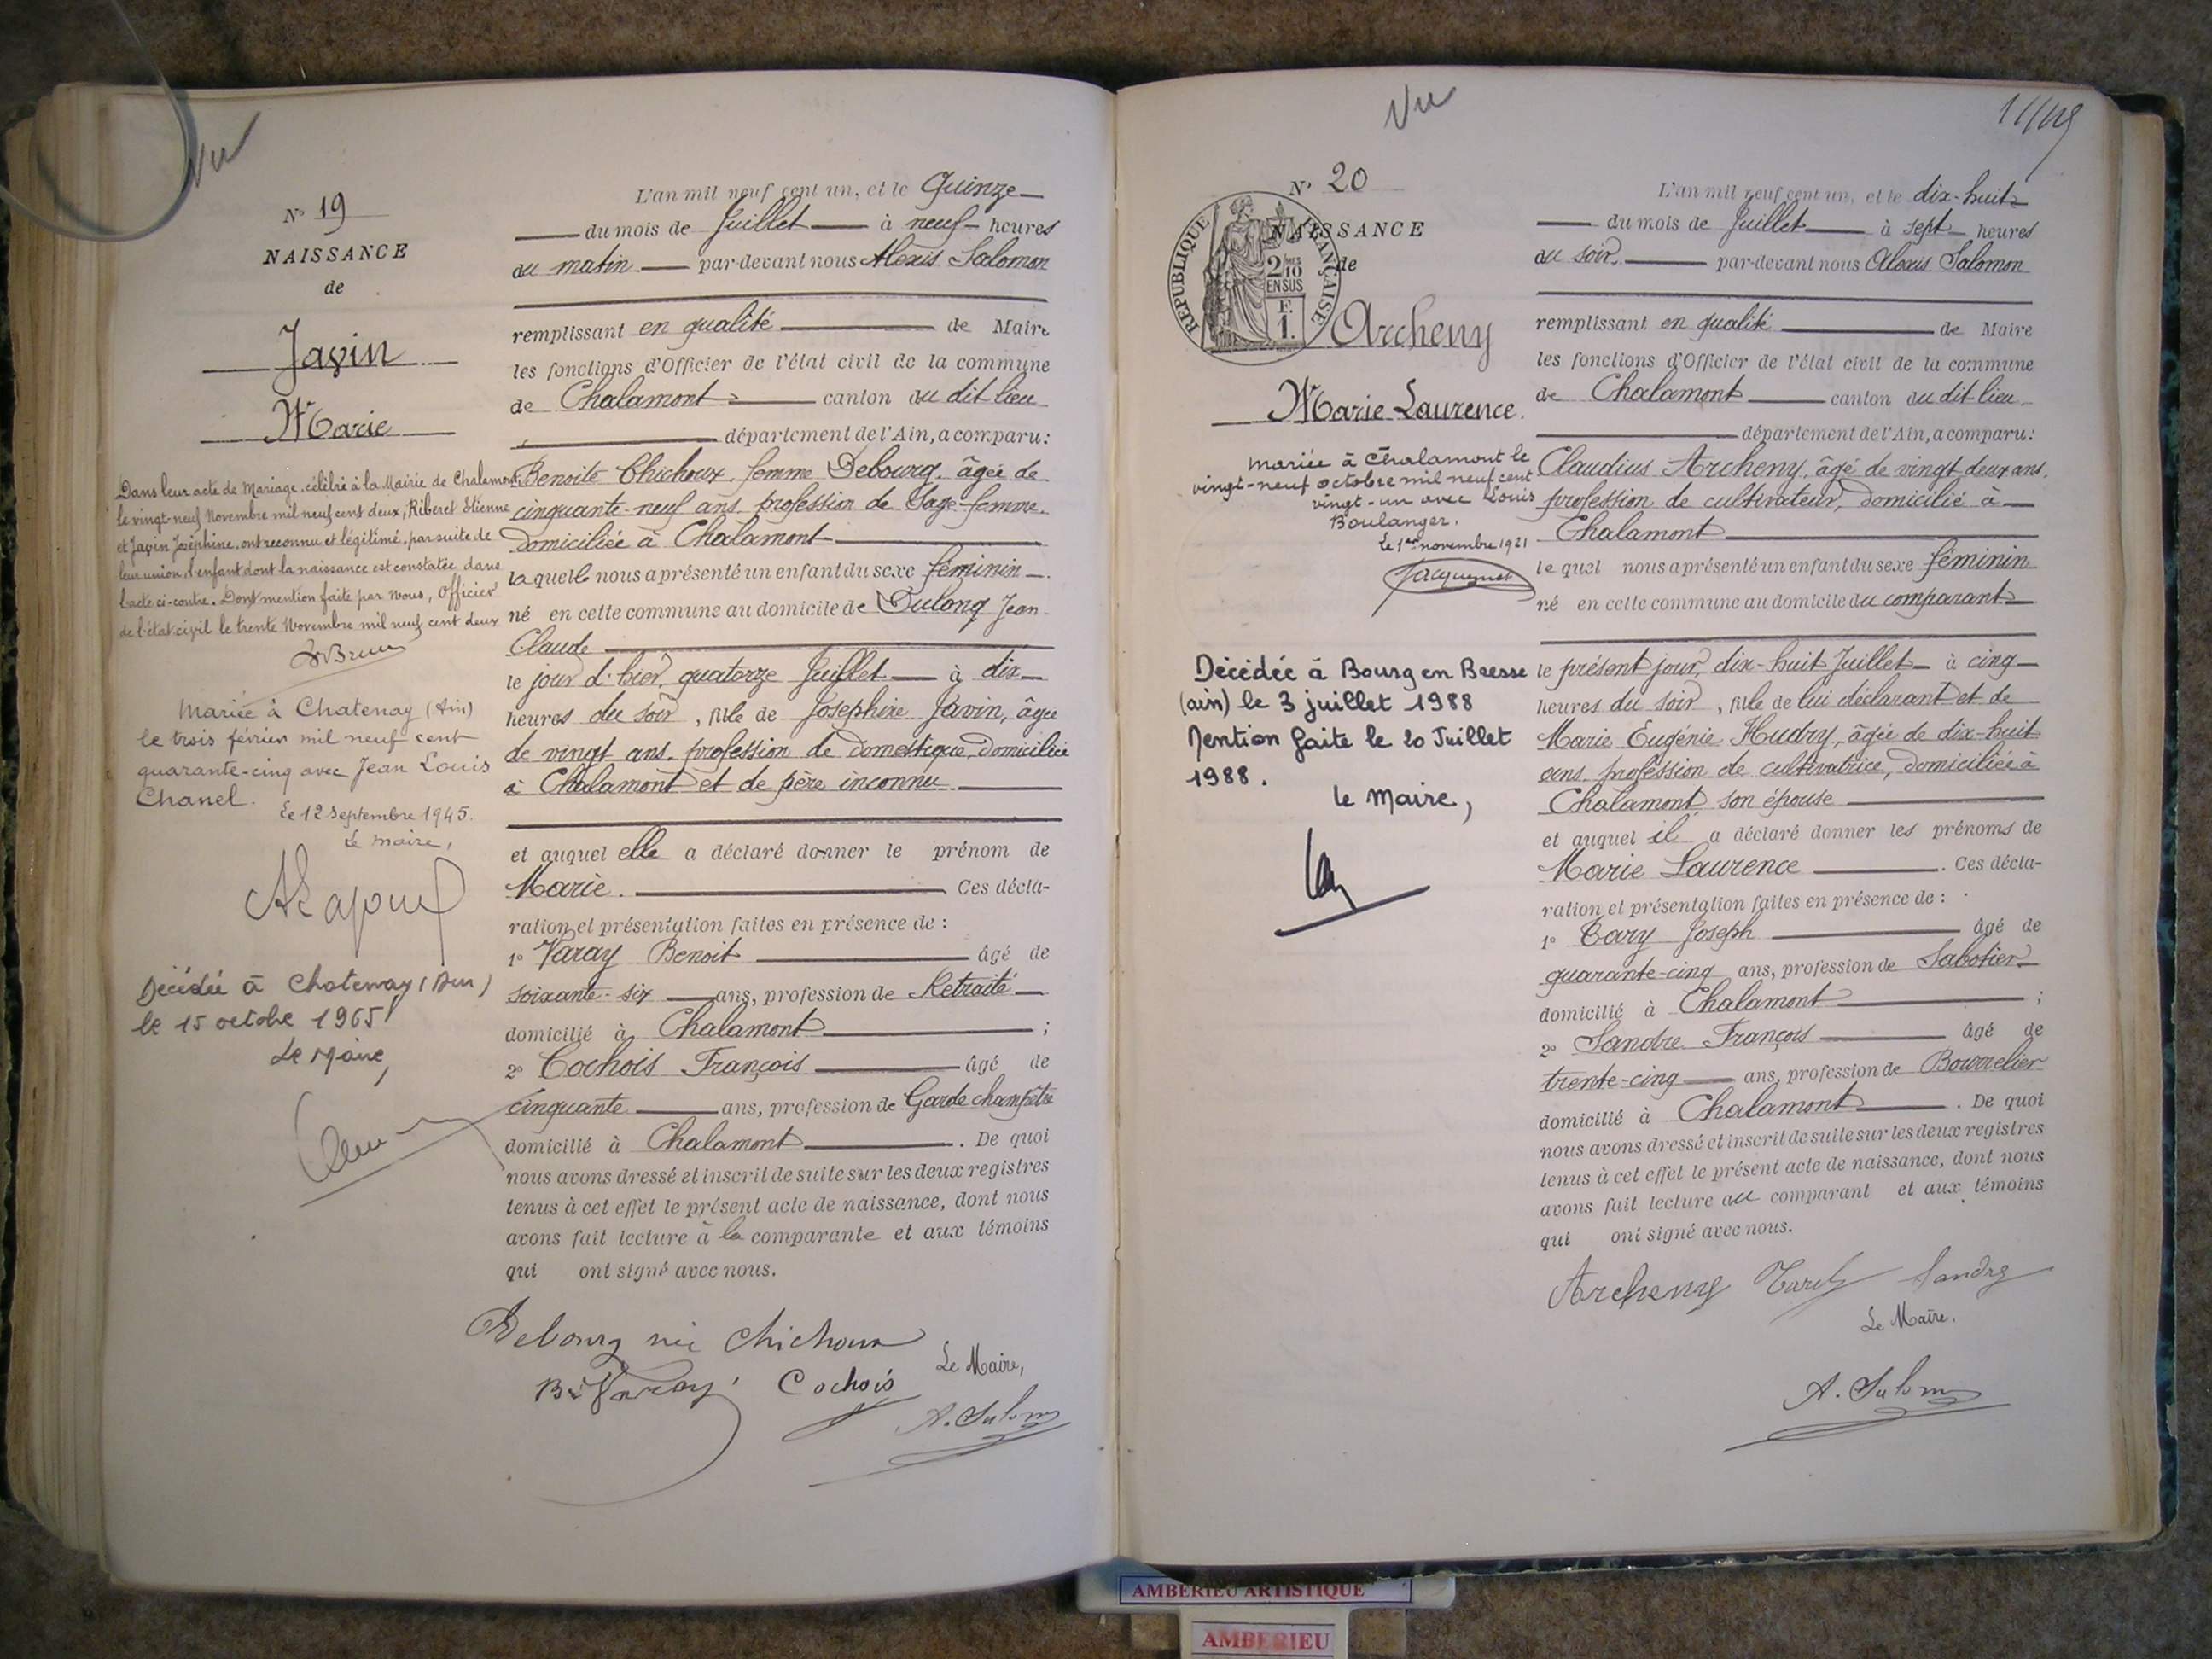 Vu
N° 19
NAISSANCE
de
Javin
Marie
Dans leur acte de Mariage, célébré à la Mairie de Chalamont
le vingt-neuf Novembre mil neuf cent deux, Riberet Etienne
et Javin Joséphine, ont reconnu et légitimé, par suite de
leur union, l'enfant dont la naissance est constatée dans
l'acte ci-contre. Dont mention faite par Nous, Officier
de l'état-civil le trente Novembre mil neuf cent deux
Mariée à Chatenay (Ain)
le trois février mil neuf cent
quarante-cinq avec Jean Louis
Chanel.
Le 12 septembre 1945.
Le maire,
Décédée à Chatenay (Ain)
le 15 octobre 1965
Le Maire,
L'an mil neuf cent un, et le Quinze
du mois de Juillet à neuf heures
du matin par-devant nous Alexis Salomon
remplissant en qualité de Maire
les fonctions d'Officier de l'état civil de la commune
de Chalamont canton du dit lieu
département de l'Ain, a comparu:
Benoite Chichoux, femme Debourg, âgée de
cinquante-neuf ans, profession de Sage-femme.
domiciliée à Chalamont
laquelle nous a présenté un enfant du sexe féminin
né en cette commune au domicile de Dulong Jean
Claude
le jour d'hier, quatorze Juillet à dix
heures du soir, fille de Josephine Javin, âgée
de vingt ans, profession de domestique, domiciliée
à Chalamont et de père inconnu
et auquel elle a déclaré donner le prénom de
Marie. Ces décla-
ration et présentation faites en présence de :
1° Varay Benoit âgé de
soixante-six ans, profession de Retraité
domicilié à Chalamont ;
2° Cochois François âgé de
cinquante ans, profession de Garde champêtre
domicilié à Chalamont . De quoi
nous avons dressé et inscrit de suite sur les deux registres
tenus à cet effet le présent acte de naissance, dont nous
avons fait lecture à la comparante et aux témoins
qui ont signé avec nous.
Debourg née Chichoux
Bt Varay Cochois Le Maire,
A. Salomon
Vu
N° 20
RÉPUBLIQUE FRANÇAISE
2/10 EN SUS
F.
1.
NAISSANCE
de
Archeny
Marie Laurence.
mariée à Chalamont le
vingt-neuf octobre mil neuf cent
vingt-un avec Louis
Boulanger.
Le 1er novembre 1921
Jacquemet
Décédée à Bourg en Bresse
(ain) le 3 juillet 1988
Mention faite le 20 Juillet
1988.
le Maire,
L'an mil neuf cent un, et le dix-huit
du mois de Juillet à sept heures
du soir. par-devant nous Alexis Salomon
remplissant en qualité de Maire
les fonctions d'Officier de l'état civil de la commune
de Chalamont canton du dit lieu
département de l'Ain, a comparu:
Claudius Archeny, âgé de vingt deux ans,
profession de cultivateur, domicilié à
Chalamont
lequel nous a présenté un enfant du sexe féminin
né en cette commune au domicile du comparant
le présent jour, dix-huit Juillet à cinq
heures du soir, fille de lui déclarant et de
Marie Eugénie Hudry, âgée de dix-huit
ans, profession de cultivatrice, domiciliée à
Chalamont, son épouse
et auquel il a déclaré donner les prénoms de
Marie Laurence . Ces décla-
ration et présentation faites en présence de :
1° Tary Joseph âgé de
quarante-cinq ans, profession de Sabotier
domicilié à Chalamont ;
2° Sandre François âgé de
trente-cinq ans, profession de Bourrelier
domicilié à Chalamont . De quoi
nous avons dressé et inscrit de suite sur les deux registres
tenus à cet effet le présent acte de naissance, dont nous
avons fait lecture au comparant et aux témoins
qui ont signé avec nous.
Archeny Tary Sandre
Le Maire.
A. Salomon
AMBERIEU ARTISTIQUE
AMBERIEU